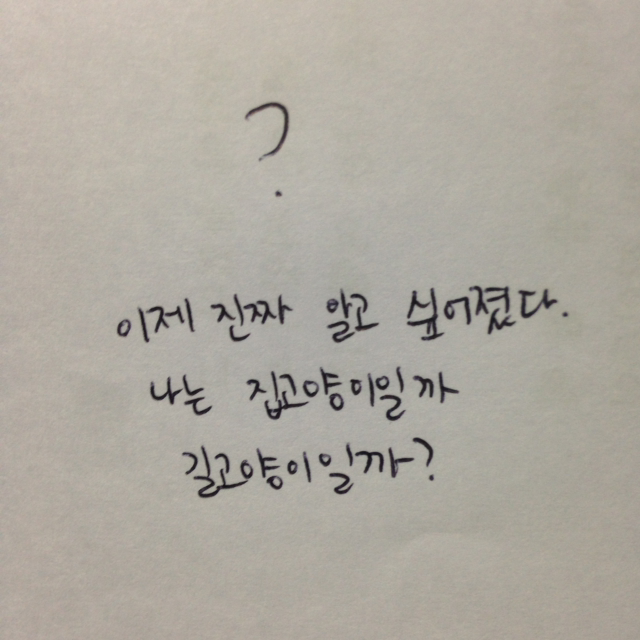 ?
이제 진짜 알고 싶어졌다.
나는 집고양이일까
길고양이일까?